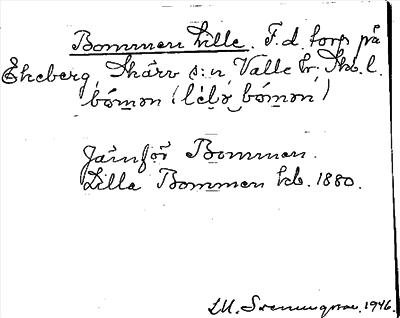 Bommen Lille. F.d. torp på
Ekeberg, Skärv s:n, Valle hr, Skb. l.
bómən (lélə bómən)
Jämför Bommen.
Lilla Bommen kb. 1880.
LM. 1946.